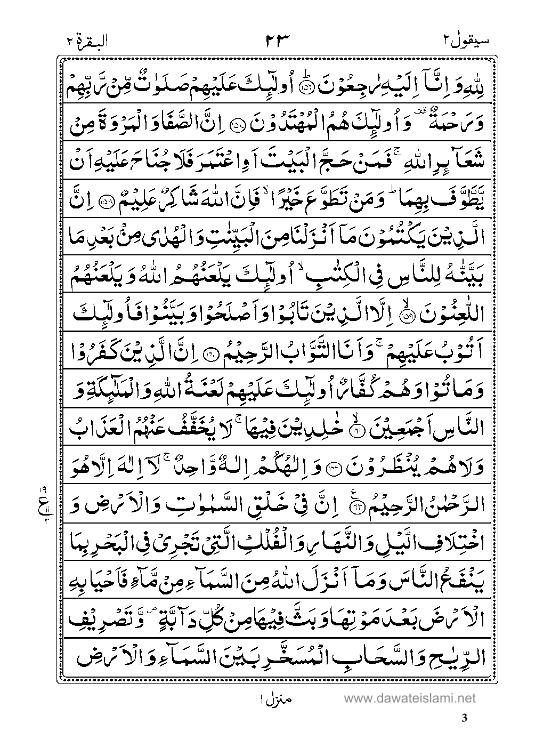 سيقول ٢ ٢٣ البقرة ٢
لِلّٰهِ وَاِنَّآ اِلَيْهِ رٰجِعُوْنَ ﴿١٥٦﴾ اُولٰٓئِكَ عَلَيْهِمْ صَلَوٰتٌ مِّنْ رَّبِّهِمْ
وَرَحْمَةٌ ۗ وَاُولٰٓئِكَ هُمُ الْمُهْتَدُوْنَ ﴿١٥٧﴾ اِنَّ الصَّفَا وَالْمَرْوَةَ مِنْ
شَعَآئِرِ اللّٰهِ ۚ فَمَنْ حَجَّ الْبَيْتَ اَوِ اعْتَمَرَ فَلَا جُنَاحَ عَلَيْهِ اَنْ
يَّطَّوَّفَ بِهِمَا ؕ وَمَنْ تَطَوَّعَ خَيْرًا ۙ فَاِنَّ اللّٰهَ شَاكِرٌ عَلِيْمٌ ﴿١٥٨﴾ اِنَّ
الَّذِيْنَ يَكْتُمُوْنَ مَآ اَنْزَلْنَا مِنَ الْبَيِّنٰتِ وَالْهُدٰى مِنْۢ بَعْدِ مَا
بَيَّنّٰهُ لِلنَّاسِ فِى الْكِتٰبِ ۙ اُولٰٓئِكَ يَلْعَنُهُمُ اللّٰهُ وَيَلْعَنُهُمُ
اللّٰعِنُوْنَ ﴿١٥٩﴾ اِلَّا الَّذِيْنَ تَابُوْا وَاَصْلَحُوْا وَبَيَّنُوْا فَاُولٰٓئِكَ
اَتُوْبُ عَلَيْهِمْ ۚ وَاَنَا التَّوَّابُ الرَّحِيْمُ ﴿١٦٠﴾ اِنَّ الَّذِيْنَ كَفَرُوْا
وَمَاتُوْا وَهُمْ كُفَّارٌ اُولٰٓئِكَ عَلَيْهِمْ لَعْنَةُ اللّٰهِ وَالْمَلٰٓئِكَةِ وَ
النَّاسِ اَجْمَعِيْنَ ﴿١٦١﴾ خٰلِدِيْنَ فِيْهَا ۚ لَا يُخَفَّفُ عَنْهُمُ الْعَذَابُ
وَلَا هُمْ يُنْظَرُوْنَ ﴿١٦٢﴾ وَاِلٰهُكُمْ اِلٰهٌ وَّاحِدٌ ۚ لَآ اِلٰهَ اِلَّا هُوَ
الرَّحْمٰنُ الرَّحِيْمُ ﴿١٦٣﴾ اِنَّ فِيْ خَلْقِ السَّمٰوٰتِ وَالْاَرْضِ وَ
اخْتِلَافِ الَّيْلِ وَالنَّهَارِ وَالْفُلْكِ الَّتِيْ تَجْرِيْ فِى الْبَحْرِ بِمَا
يَنْفَعُ النَّاسَ وَمَآ اَنْزَلَ اللّٰهُ مِنَ السَّمَآءِ مِنْ مَّآءٍ فَاَحْيَا بِهِ
الْاَرْضَ بَعْدَ مَوْتِهَا وَبَثَّ فِيْهَا مِنْ كُلِّ دَآبَّةٍ ۪ وَّتَصْرِيْفِ
الرِّيٰحِ وَالسَّحَابِ الْمُسَخَّرِ بَيْنَ السَّمَآءِ وَالْاَرْضِ
منزل ١
www.dawateislami.net
3